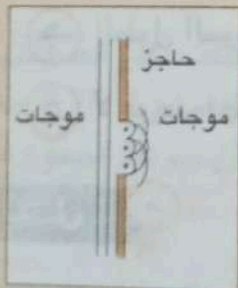 حاجز
موجات
موجات